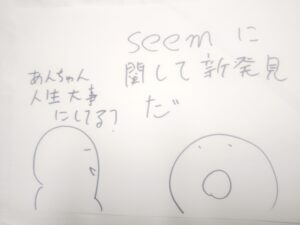 seem に
関して新発見
だ
あんちゃん
人生大事
にしてる?